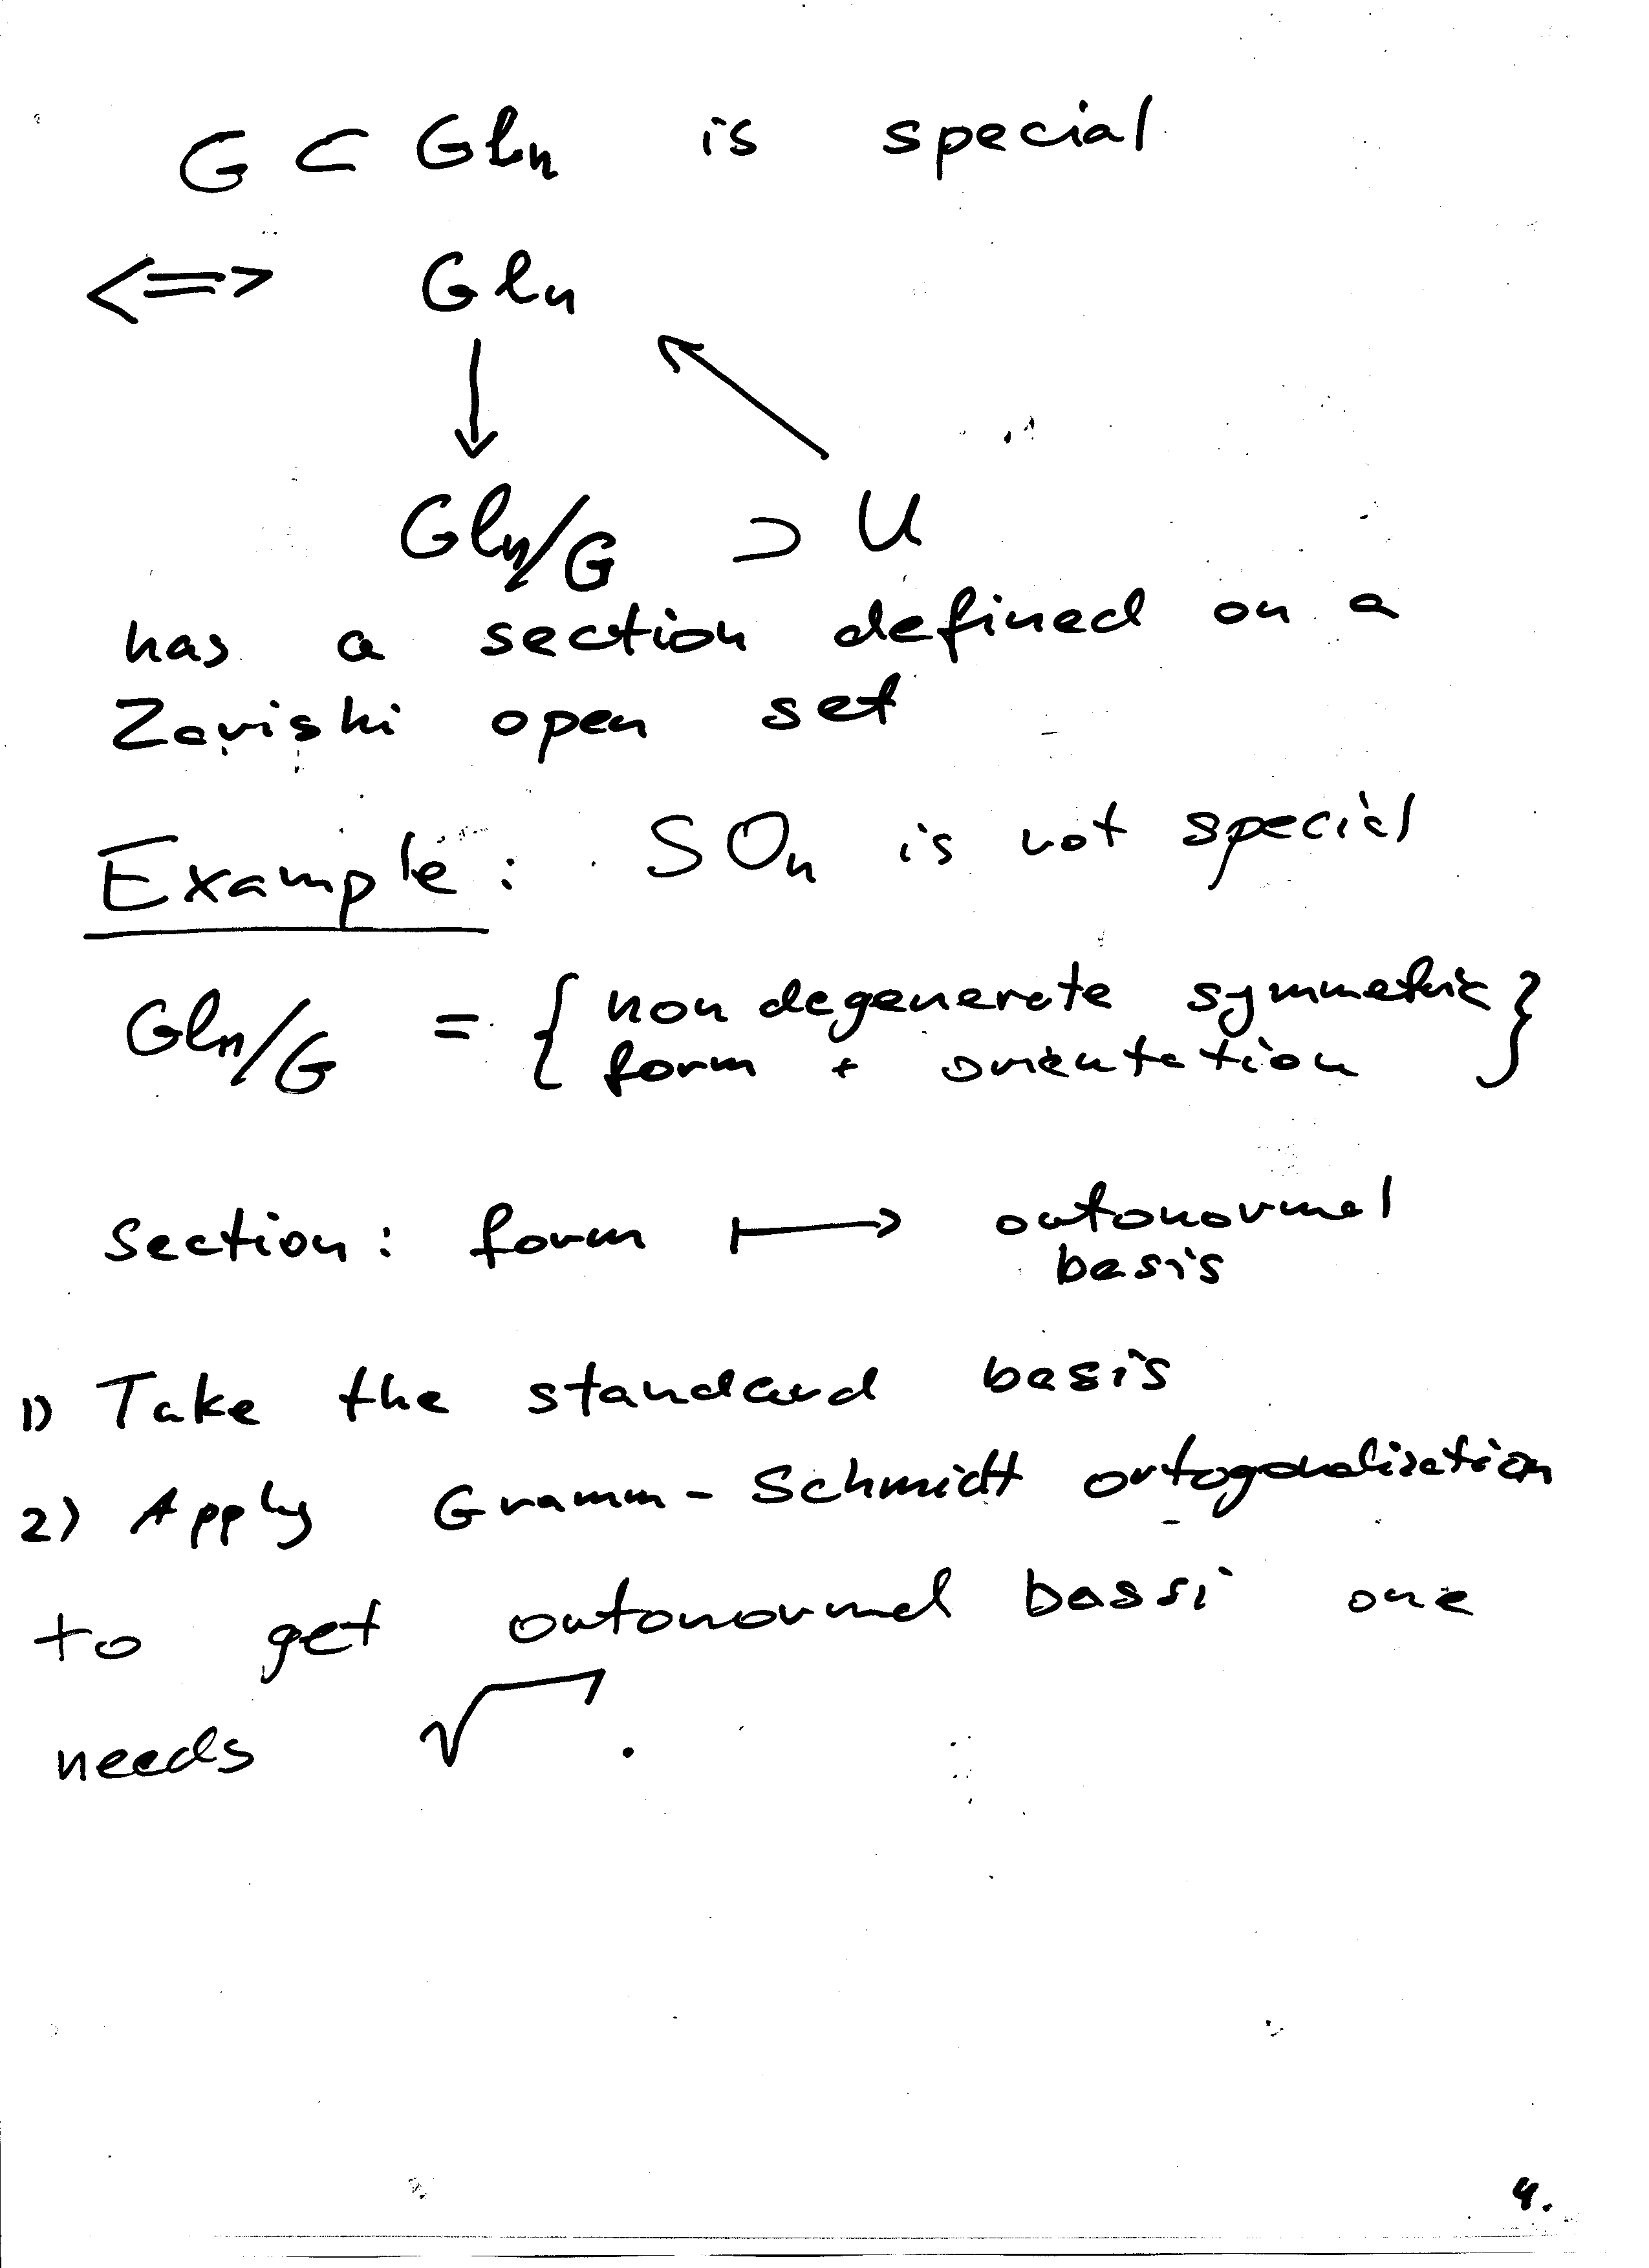 G ⊂ Gln is special
<=> Gln
Gln/G ⊃ U
has a section defined on a
Zariski open set
Example: SOn is not special
Gln/G = { non degenerate symmetric
form + orientation }
section: form ↦ ortonormal
basis
1) Take the standard basis
2) Apply Gramm-Schmidt ortogonalization
to get ortonormal bassi one
needs √ .
4.